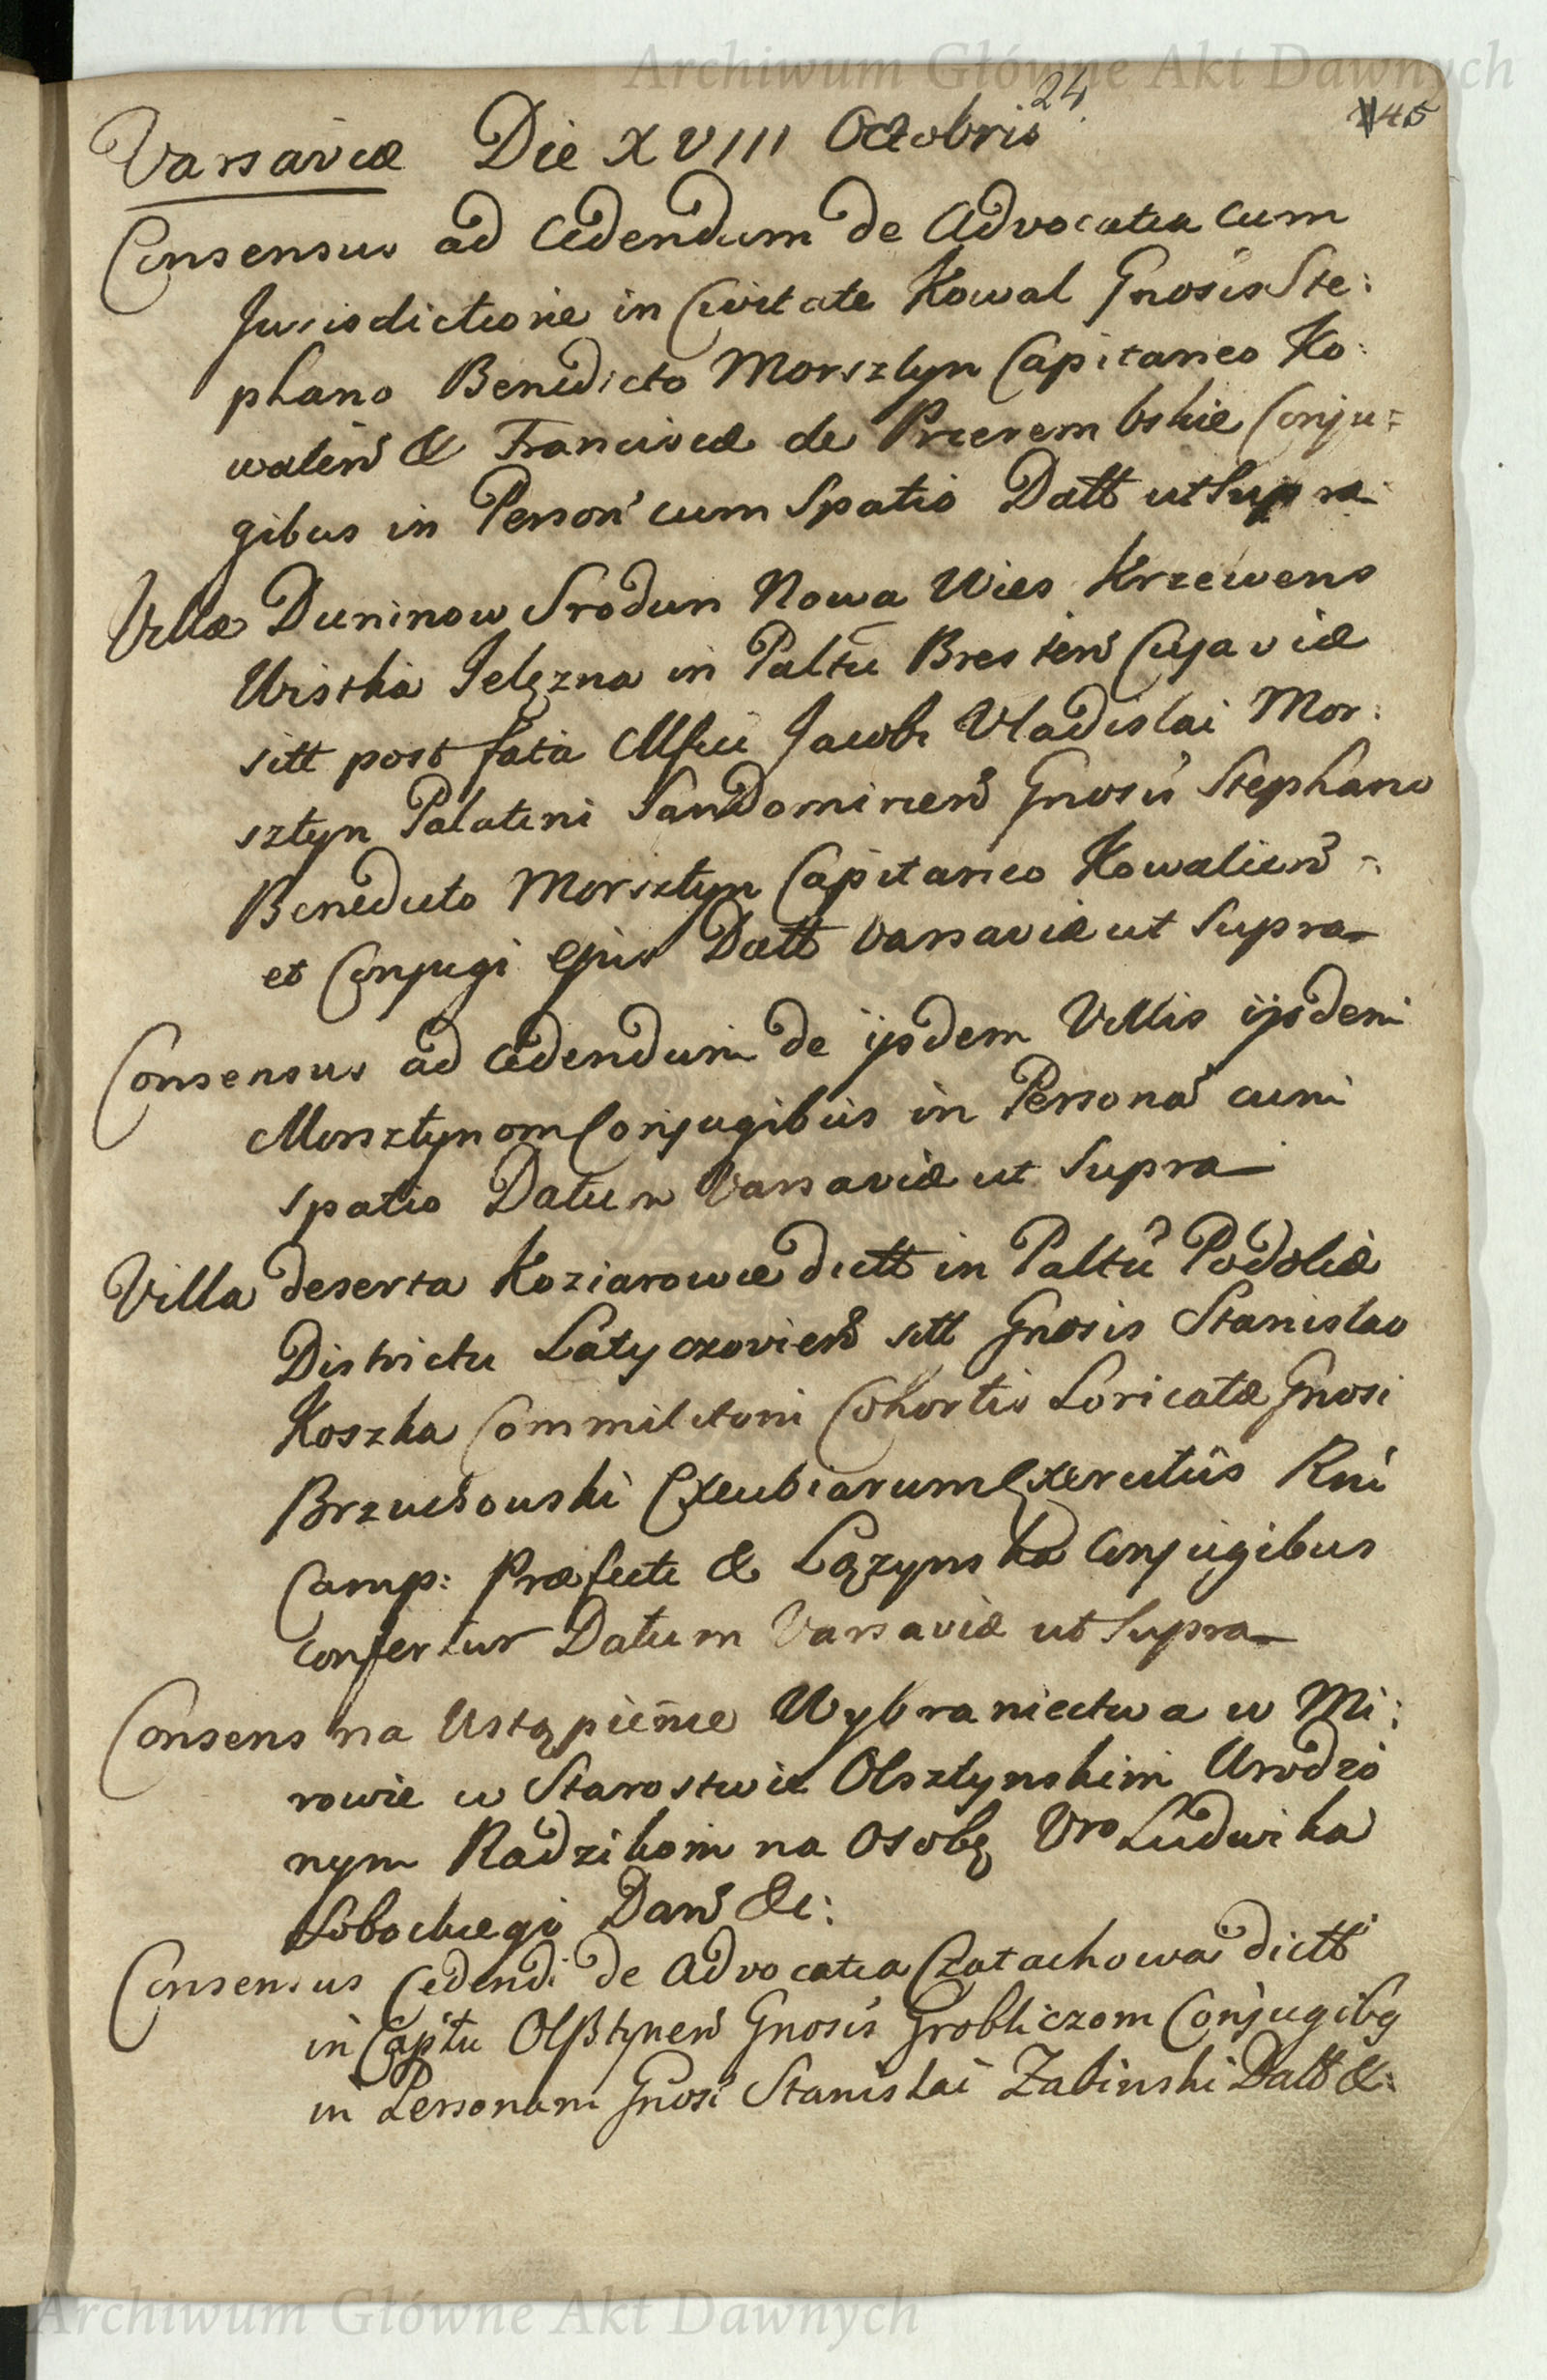 Archiwum Główne Akt Dawnych
24
145
Varsaviæ Die XVIII Octobris
Consensus ad Cedendum de Advocatia cum
Jurisdictione in Civitate Kowal Gnosis Ste:
phano Benedicto Morsztyn Capitaneo Ko:
walien̄ & Franciscæ de Przerembskie Conju:
gibus in Person̄ cum Spatio Datt ut Supra
Villæ Duninow Srodun Nowa Wies Krzewens
Wistka Jelęzna in Paltū Bresten̄ Cujaviæ
sitt post fata Mfici Jacobi Vladislai Mor:
sztyn Palatini Sandomirien̄ Gnosis Stephano
Benedicto Morsztyn Capitaneo Kowalien̄
et Conjugi ejus Datt Varsaviæ ut Supra
Consensus ad Cedendum de ijsdem Villis ijsdem
Morsztynom Conjugibus in Personā cum
spatio Datum Varsaviæ ut Supra
Villa deserta Koziarowce dictt in Paltū Podoliæ
Districtu Latyczovien̄ sitt Gnosis Stanislao
Koszka Commilitoni Cohortis Loricatæ Gnosi
Brzuchowski Excubiarum Exercitūs Rni
Camp: Præfecti & Lązynska Conjugibus
confertur Datum Varsaviæ ut Supra
Consens na Ustąpienie Wybraniectwa w Mi:
rowie w Starostwie Olsztynskim Urodzo
nym Radzikom na Osobę Uro Ludwika
Łobockiego Dan̄ &c:
Consensus Cedendi de Advocatia Czatachowa dictt
in Captu Olsztynen̄ Gnosis Grobliczom Conjugibq
in Personam Gnosi Stanislai Zabinski Datt &:
Archiwum Główne Akt Dawnych